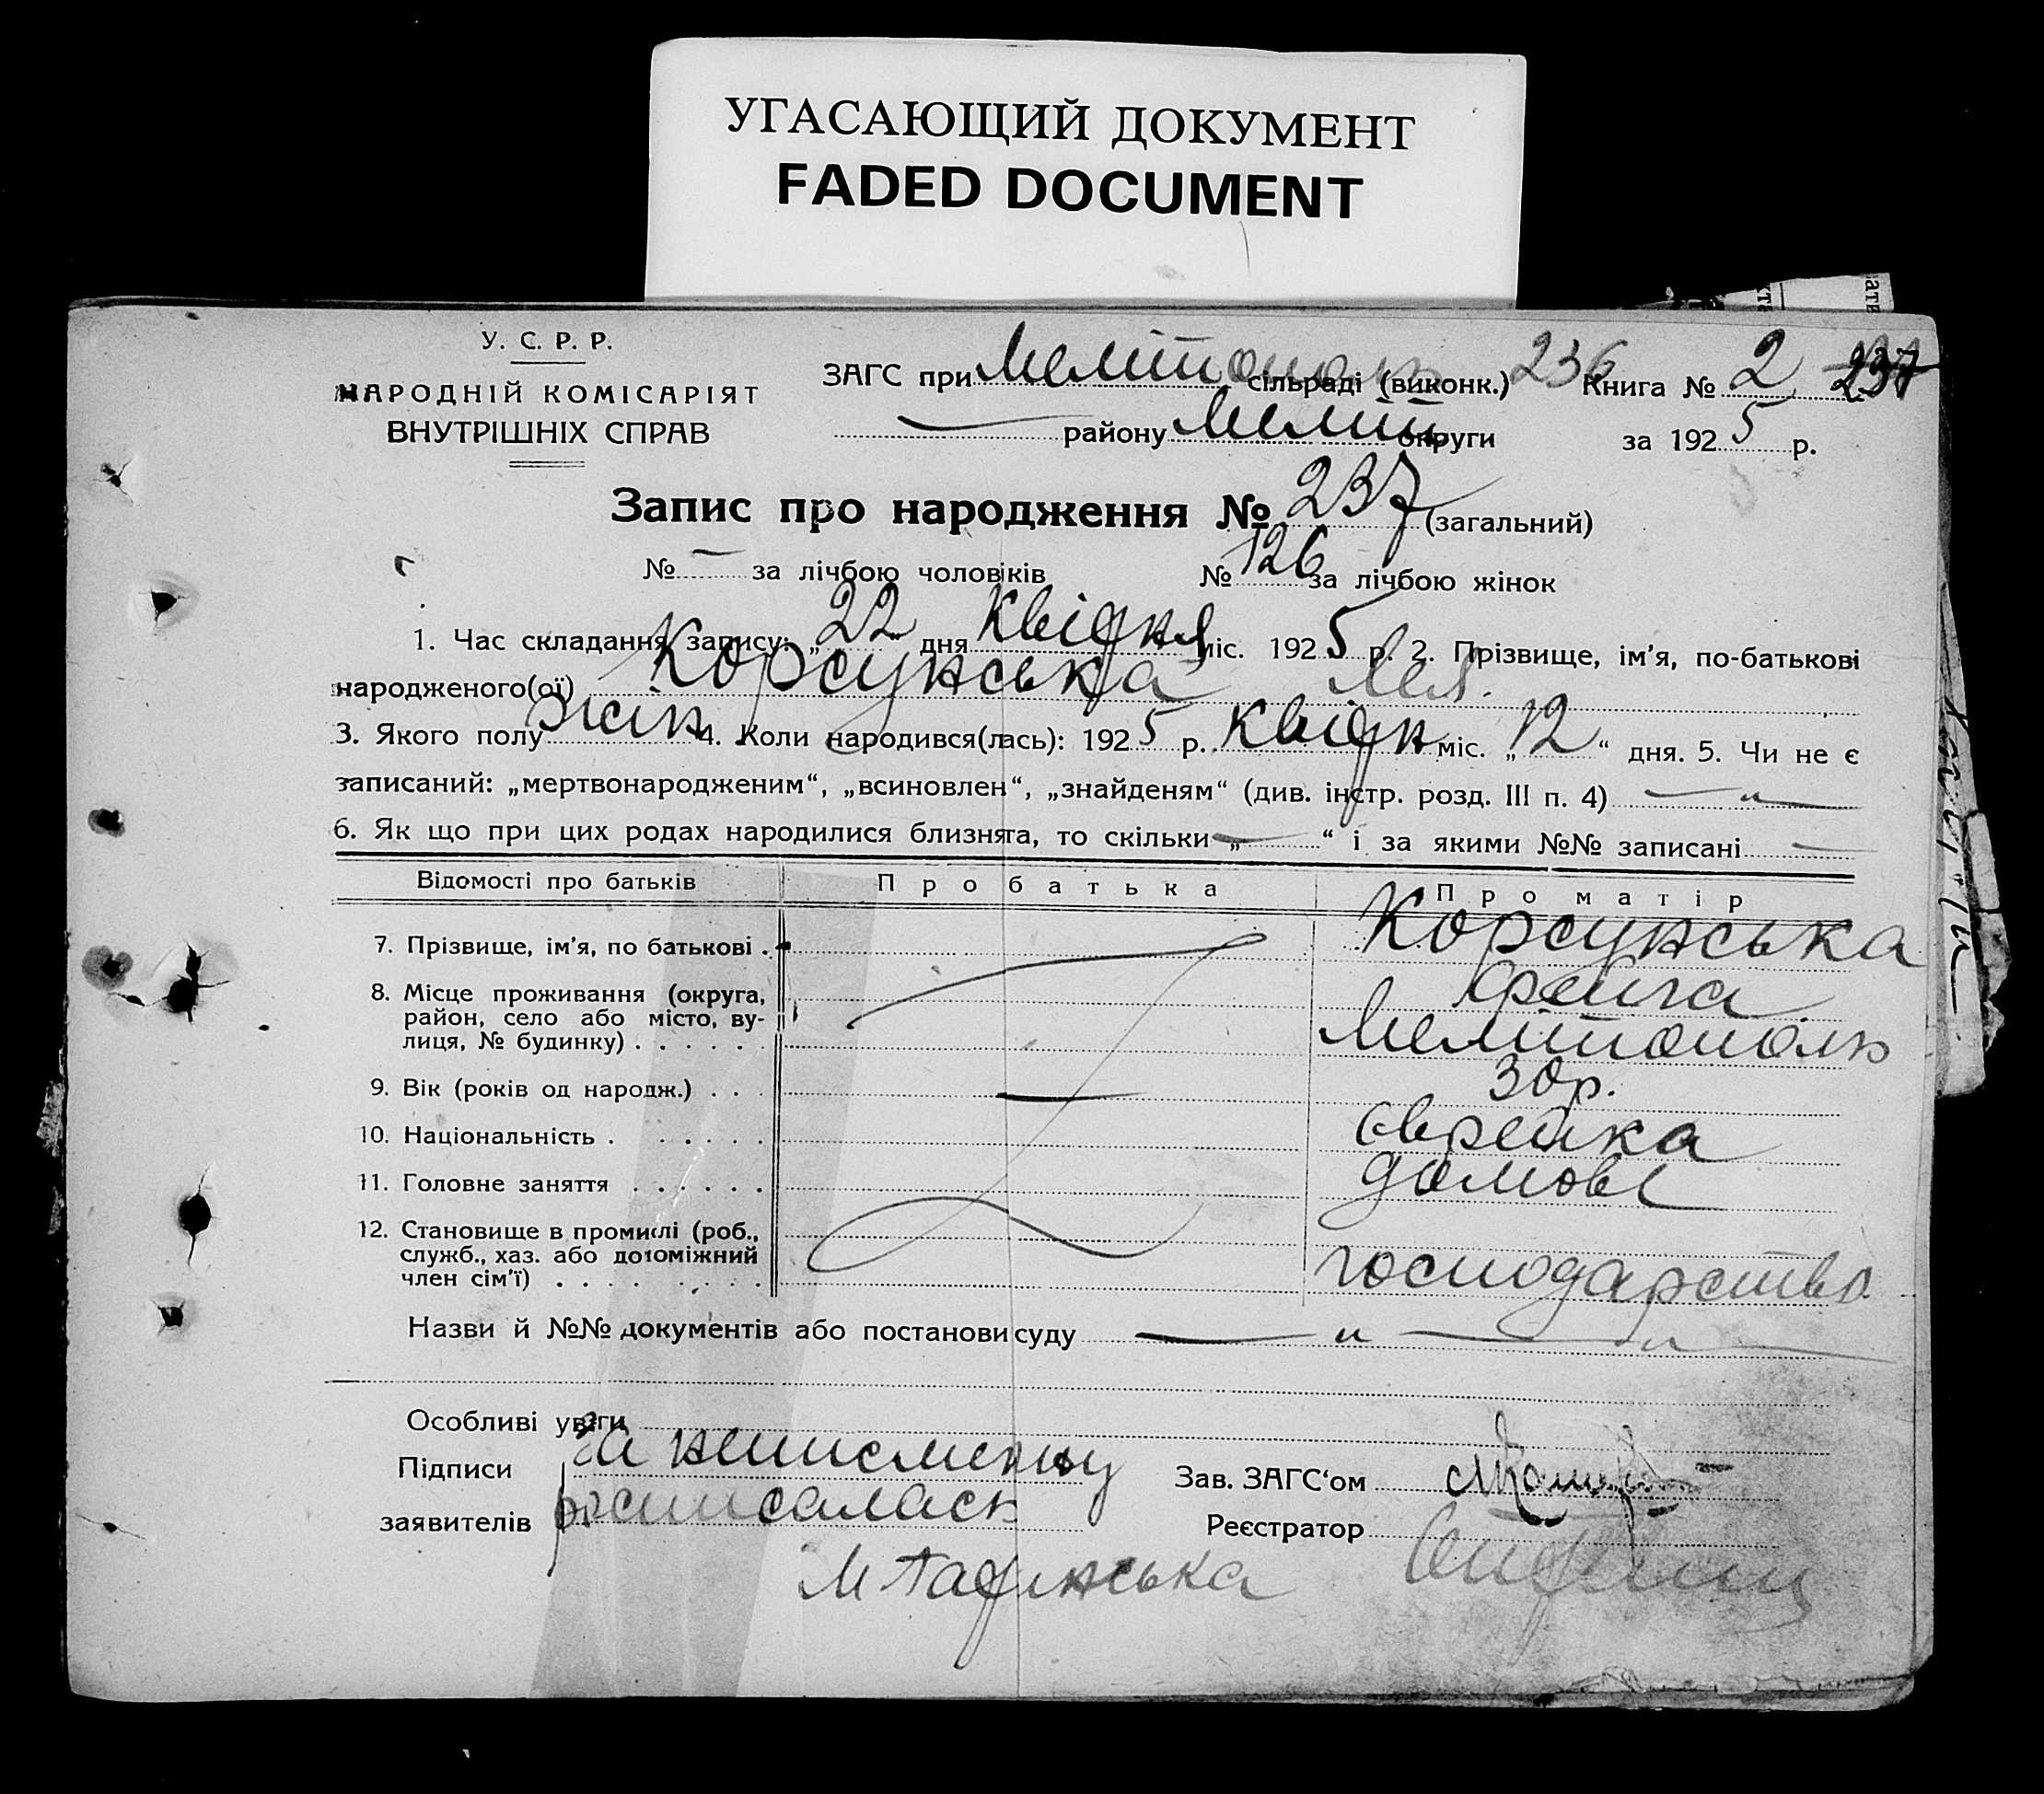 УГАСАЮЩИЙ ДОКУМЕНТ
FADED DOCUMENT
У. С. Р. Р.
НАРОДНІЙ КОМІСАРІЯТ
ВНУТРІШНІХ СПРАВ
ЗАГС при Мелітополь сільраді (виконк.) 236 Книга № 2 237
— району Меліт округи за 1925 р.
Запис про народження № 237 (загальний)
№ — за лічбою чоловіків № 126 за лічбою жінок
1. Час складання запису: „22" дня Квідня міс. 1925 р. 2. Прізвище, ім'я, по-батькові
народженого(ої) Корсунська
3. Якого полу жін 4. Коли народився(лась): 1925 р. Квідн міс. „12" дня. 5. Чи не є
записаний: „мертвонародженим", „всиновлен", „знайденям" (див. інстр. розд. III п. 4) — „ —
6. Як що при цих родах народилися близнята, то скільки „—" і за якими №№ записані —
Відомості про батьків Про батька Про матір
7. Прізвище, ім'я, по батькові . Корсунська
Фейга
8. Місце проживання (округа,
район, село або місто, ву-
лиця, № будинку) . . . . . . Мелітополь
9. Вік (років од народж.) . . . — 30р.
10. Національність . . . . . . Єврейка
11. Головне заняття . . . . . . домове
12. Становище в промислі (роб.,
служб., хаз. або допоміжний
член сім'ї) . . . . . . . . . господарство
Назви й №№ документів або постанови суду — „ — „ —
Особливі уваги
Підписи за неписменну Зав. ЗАГС'ом
заявителів росписалась Реєстратор